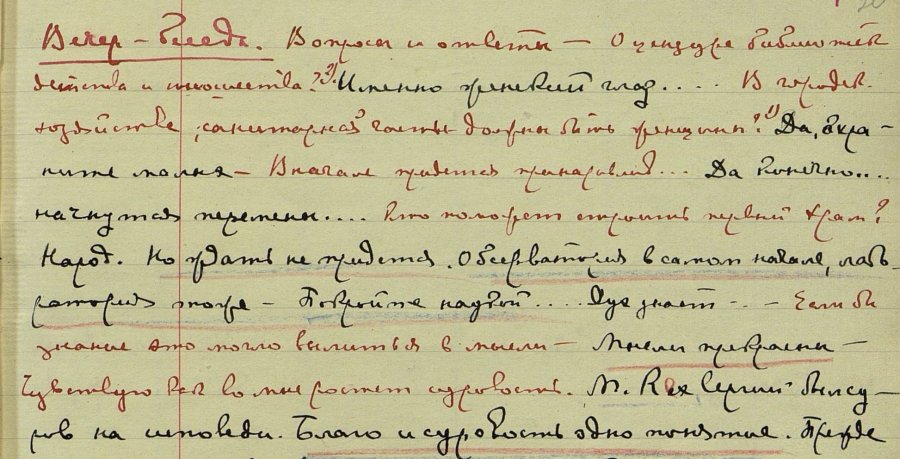 Вечер – беседа. Вопросы и ответы – О цензуре библиотек
детства и юношества? Именно женский глаз.... В городск.
хозяйстве, санитарной части должны быть женщины? Да, охра-
ните молча – Вначале придется приноровлять... Да конечно....
начнутся перемены.... Кто поможет строить первый Храм?
Народ. Но ждать не придется. Обсерватория в самом начале, лаб-
ратория тоже – Покройте наукой.... Дух знает – – Если бы
знание это могло вылиться в мысли – Мысли прекрасны –
Чувствую как во мне растет суровость. М. Rex Сергий был су-
ров на исповеди. Благо и суровость одно понятие. Прежде